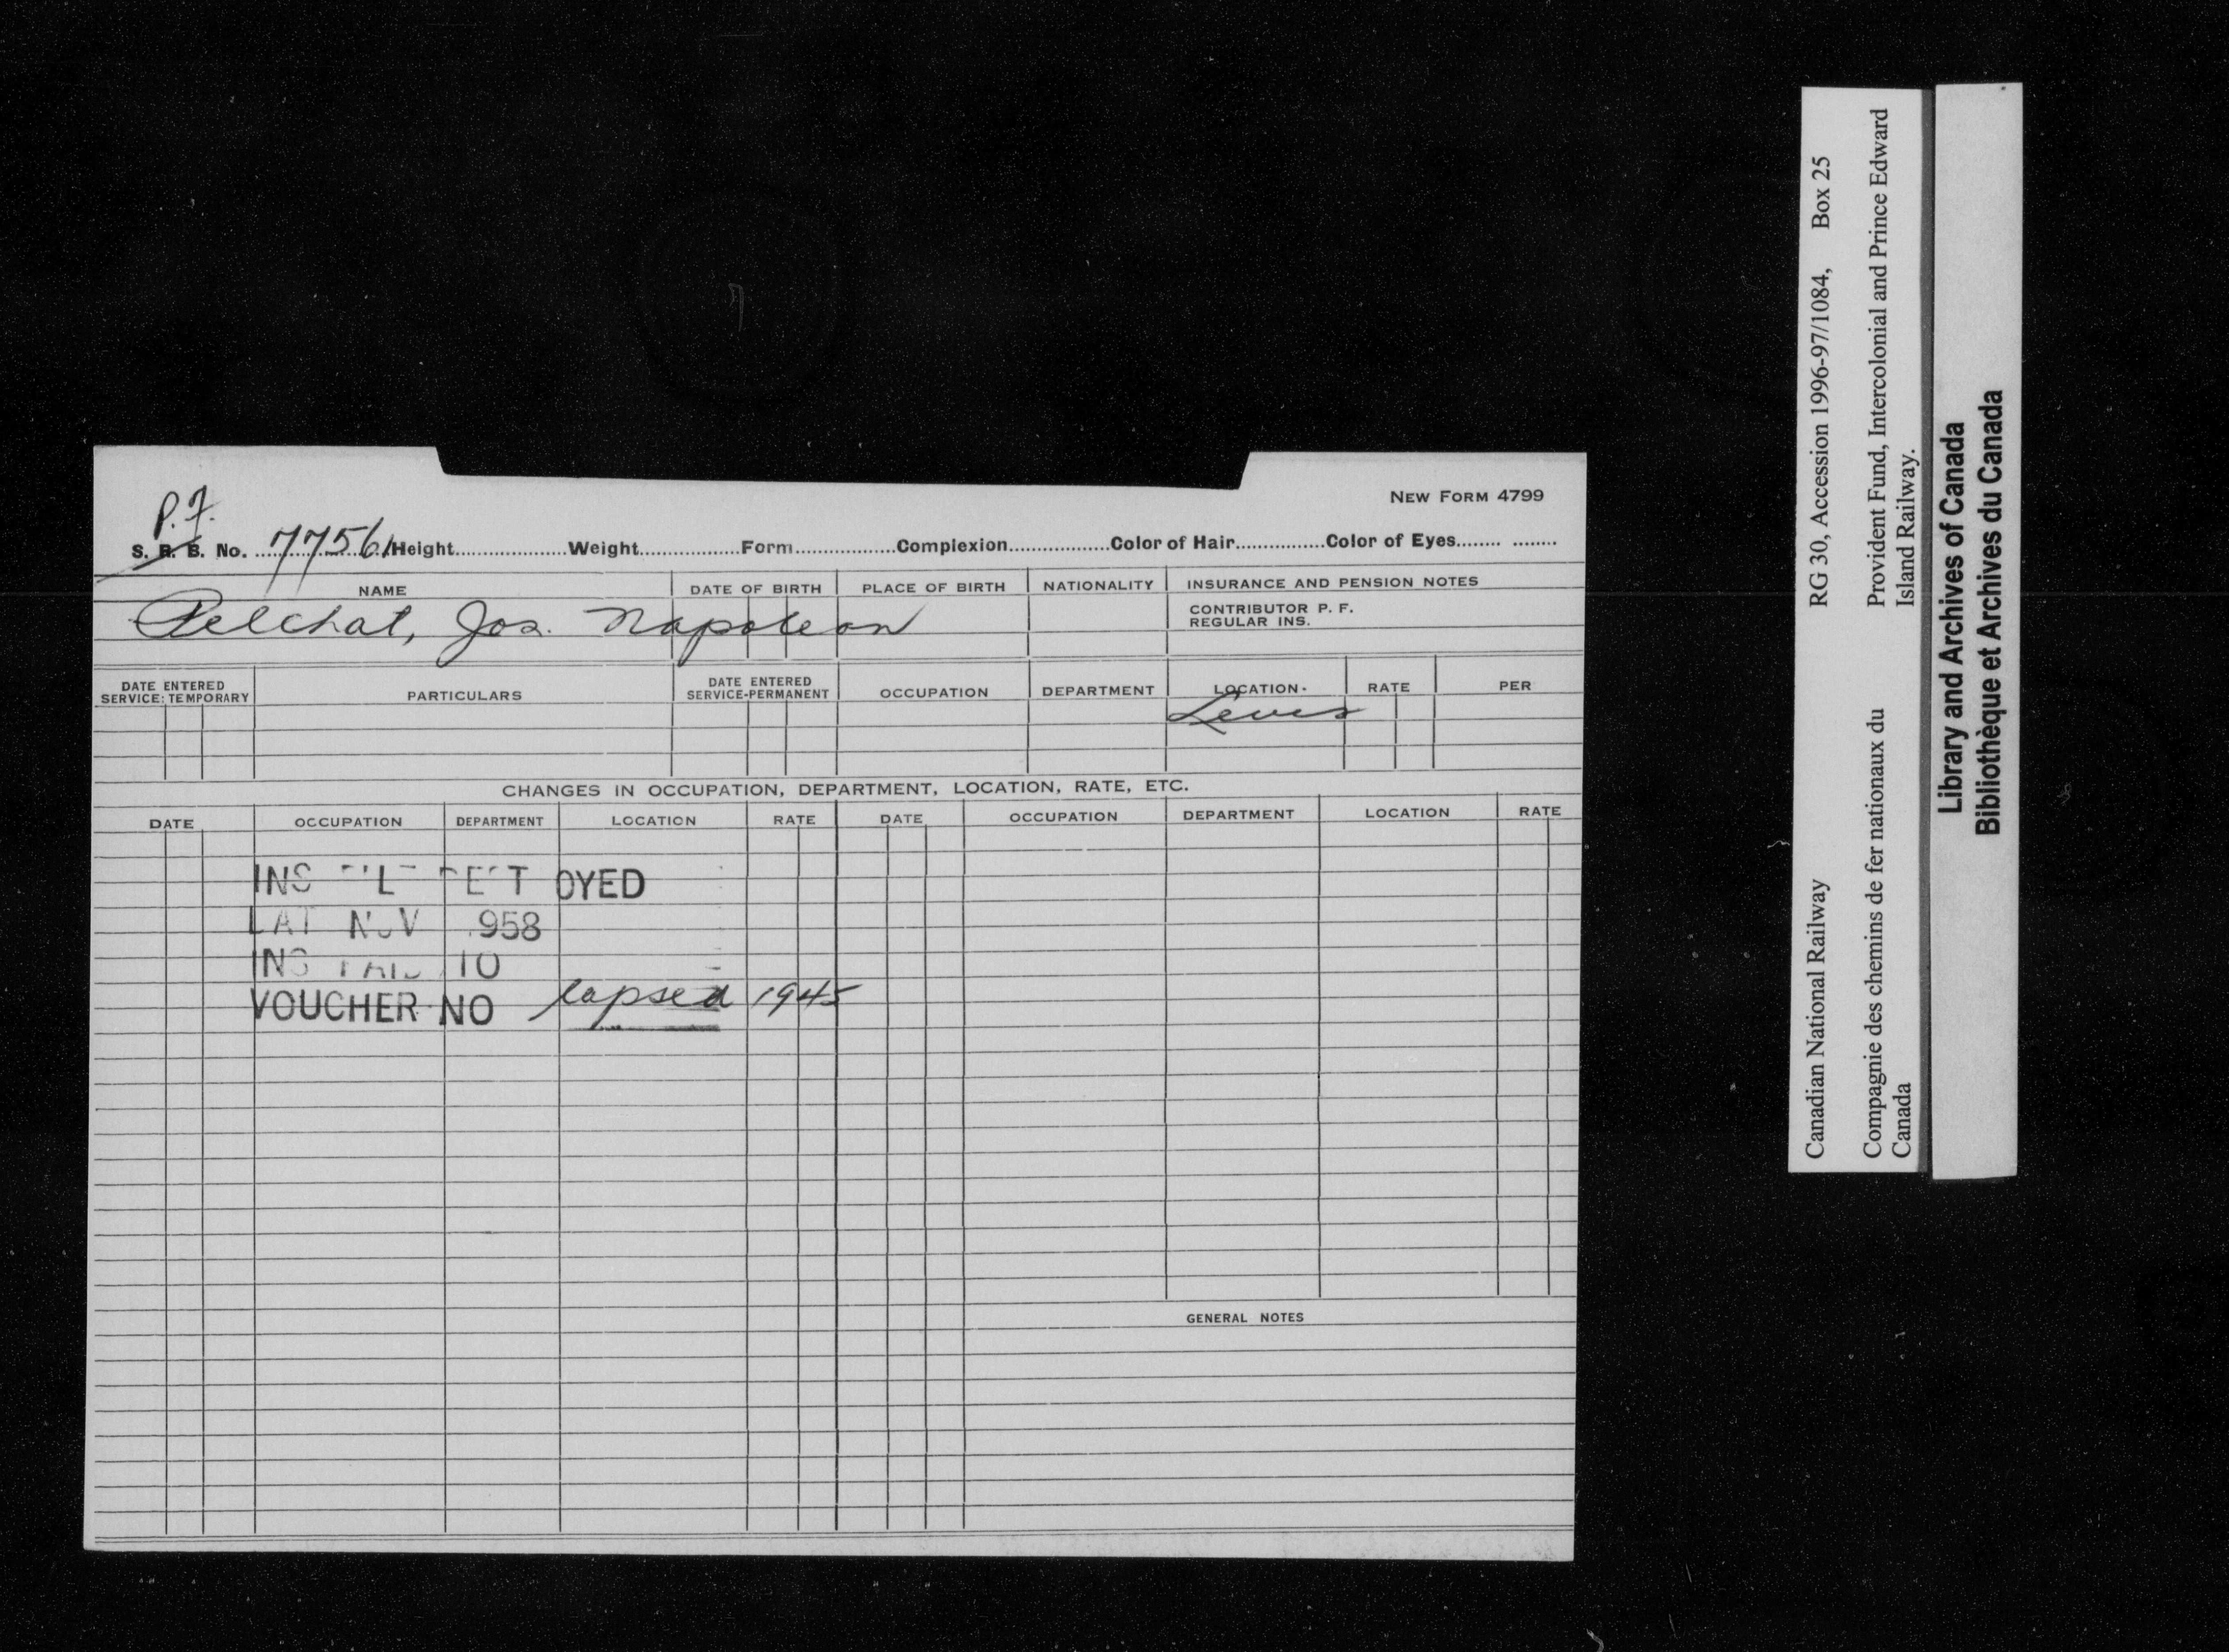 P.F.
NEW FORM 4799
S. R. B. No. 77561 Height Weight Form Complexion Color of Hair Color of Eyes
NAME DATE OF BIRTH PLACE OF BIRTH NATIONALITY INSURANCE AND PENSION NOTES
CONTRIBUTOR P. F.
REGULAR INS.
Pelchat, Jos. Napoleon
DATE ENTERED SERVICE: TEMPORARY PARTICULARS DATE ENTERED SERVICE-PERMANENT OCCUPATION DEPARTMENT LOCATION RATE PER
Levis
CHANGES IN OCCUPATION, DEPARTMENT, LOCATION, RATE, ETC.
DATE OCCUPATION DEPARTMENT LOCATION RATE DATE OCCUPATION DEPARTMENT LOCATION RATE
INS
NOV 958
INS PAID TO
VOUCHER NO lapsed 1945
GENERAL NOTES
Canadian National Railway RG 30, Accession 1996-97/1084, Box 25
Compagnie des chemins de fer nationaux du Provident Fund, Intercolonial and Prince Edward
Canada Island Railway.
Library and Archives of Canada
Bibliothèque et Archives du Canada